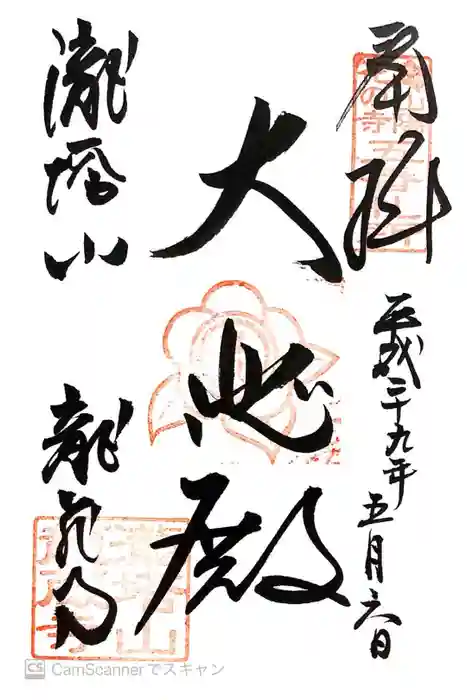 奉拝
平成二十九年五月六日
大悲殿
瀧塔山
龍泉寺
CamScannerでスキャン